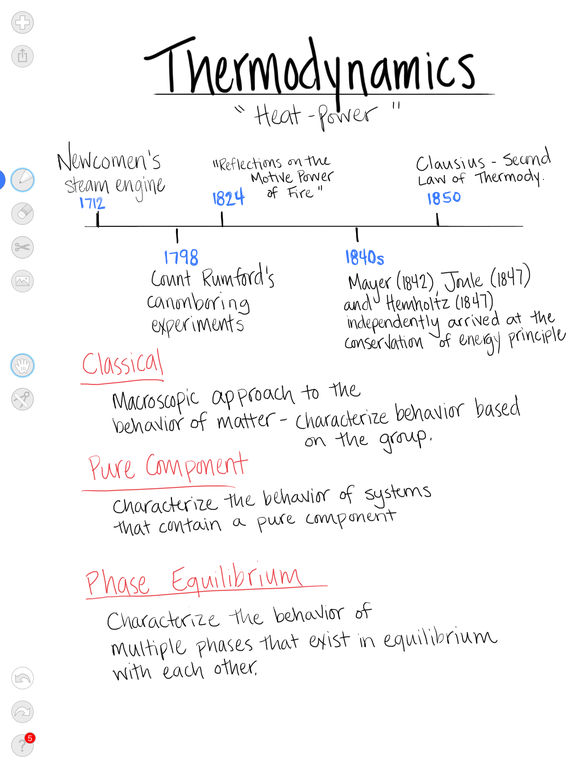 Thermodynamics
"Heat-power"
Newcomen's
steam engine
1712
"Reflections on the
Motive Power
of Fire"
1824
Clausius - Second
Law of Thermody.
1850
1798
Count Rumford's
canonboring
experiments
1840s
Mayer (1842), Joule (1847)
and Hemholtz (1847)
independently arrived at the
conservation of energy principle
Classical
Macroscopic approach to the
behavior of matter - characterize behavior based
on the group.
Pure Component
characterize the behavior of systems
that contain a pure component
Phase Equilibrium
Characterize the behavior of
multiple phases that exist in equilibrium
with each other.
?
5